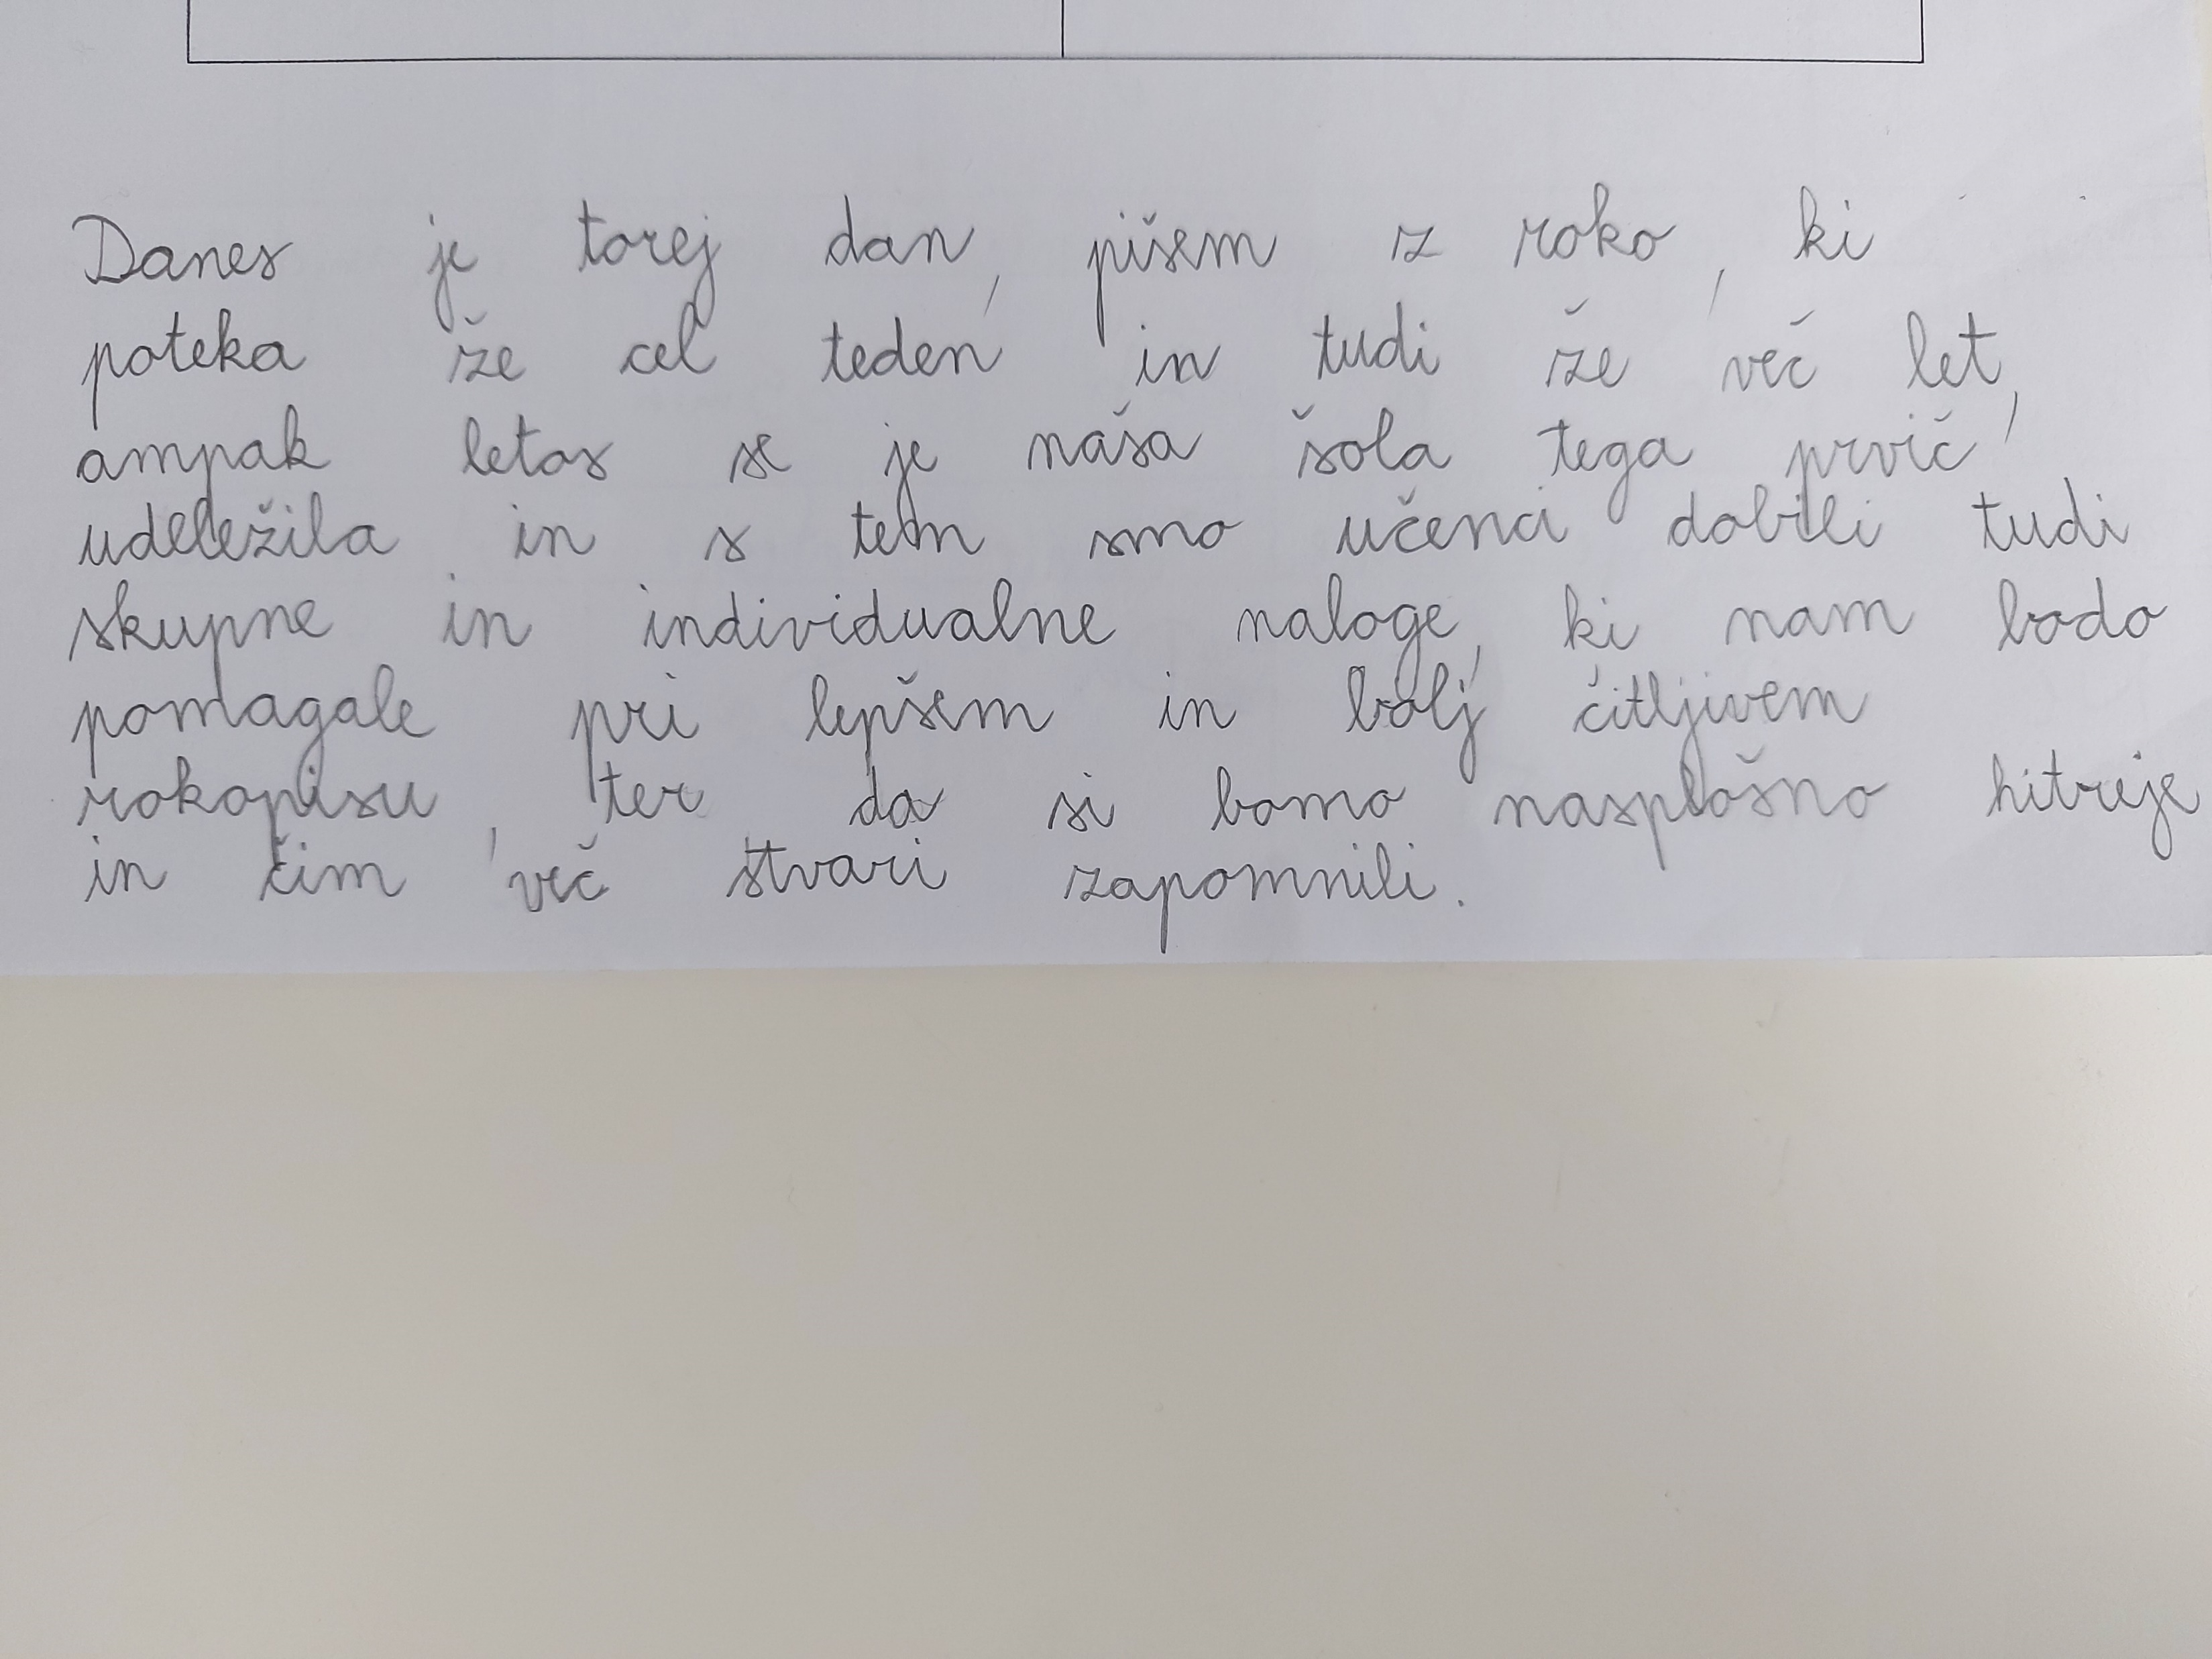 Danes je torej dan, pišem z roko, ki
poteka že cel teden in tudi že več let,
ampak letos se je naša šola tega prvič
udeležila in s tem smo učenci dobili tudi
skupne in individualne naloge, ki nam bodo
pomagale pri lepšem in bolj čitljivem
rokopisu, ter da si bomo nasplošno hitreje
in čim več stvari zapomnili.